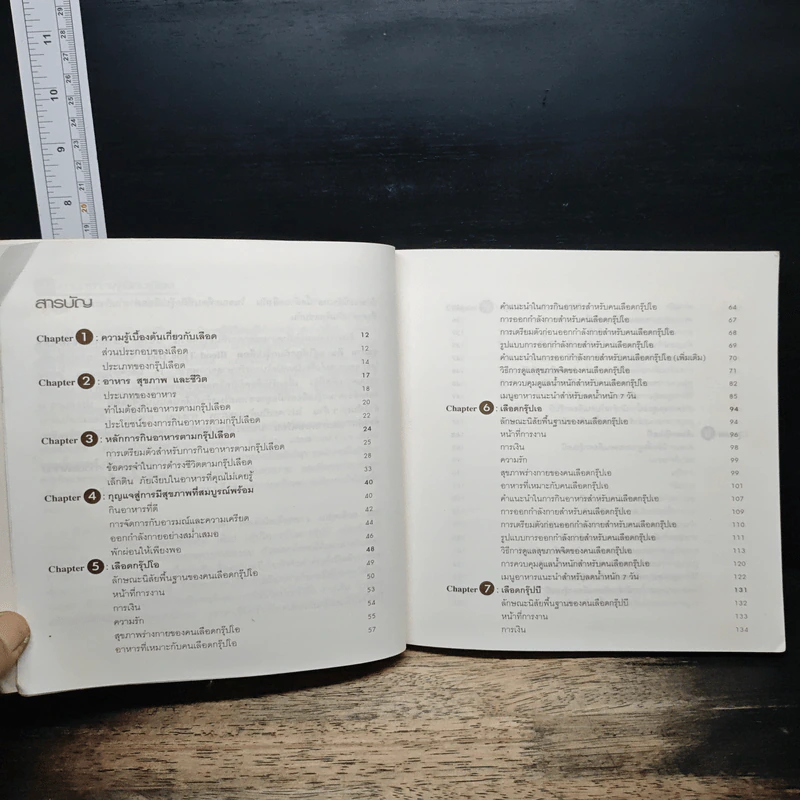 สารบัญ
Chapter 1 : ความรู้เบื้องต้นเกี่ยวกับเลือด 12
ส่วนประกอบของเลือด 12
ประเภทของกรุ๊ปเลือด 14
Chapter 2 : อาหาร สุขภาพ และชีวิต 17
ประเภทของอาหาร 18
ทำไมต้องกินอาหารตามกรุ๊ปเลือด 20
ประโยชน์ของการกินอาหารตามกรุ๊ปเลือด 22
Chapter 3 : หลักการกินอาหารตามกรุ๊ปเลือด 24
การเตรียมตัวสำหรับการกินอาหารตามกรุ๊ปเลือด 25
ข้อควรจำในการดำรงชีวิตตามกรุ๊ปเลือด 28
เล็กติน ภัยเงียบในอาหารที่คุณไม่เคยรู้ 33
Chapter 4 : กุญแจสู่การมีสุขภาพที่สมบูรณ์พร้อม 40
กินอาหารที่ดี 40
การจัดการกับอารมณ์และความเครียด 42
ออกกำลังกายอย่างสม่ำเสมอ 44
พักผ่อนให้เพียงพอ 46
Chapter 5 : เลือดกรุ๊ปโอ 48
ลักษณะนิสัยพื้นฐานของคนเลือดกรุ๊ปโอ 49
หน้าที่การงาน 50
การเงิน 53
ความรัก 54
สุขภาพร่างกายของคนเลือดกรุ๊ปโอ 55
อาหารที่เหมาะกับคนเลือดกรุ๊ปโอ 57
คำแนะนำในการกินอาหารสำหรับคนเลือดกรุ๊ปโอ 64
การออกกำลังกายสำหรับคนเลือดกรุ๊ปโอ 67
การเตรียมตัวก่อนออกกำลังกายสำหรับคนเลือดกรุ๊ปโอ 68
รูปแบบการออกกำลังกายสำหรับคนเลือดกรุ๊ปโอ 69
คำแนะนำในการออกกำลังกายสำหรับคนเลือดกรุ๊ปโอ (เพิ่มเติม) 70
วิธีการดูแลสุขภาพจิตของคนเลือดกรุ๊ปโอ 71
การควบคุมดูแลน้ำหนักสำหรับคนเลือดกรุ๊ปโอ 82
เมนูอาหารแนะนำสำหรับลดน้ำหนัก 7 วัน 85
Chapter 6 : เลือดกรุ๊ปเอ 94
ลักษณะนิสัยพื้นฐานของคนเลือดกรุ๊ปเอ 94
หน้าที่การงาน 96
การเงิน 98
ความรัก 99
สุขภาพร่างกายของคนเลือดกรุ๊ปเอ 99
อาหารที่เหมาะกับคนเลือดกรุ๊ปเอ 101
คำแนะนำในการกินอาหารสำหรับคนเลือดกรุ๊ปเอ 107
การออกกำลังกายสำหรับคนเลือดกรุ๊ปเอ 109
การเตรียมตัวก่อนออกกำลังกายสำหรับคนเลือดกรุ๊ปเอ 110
รูปแบบการออกกำลังกายสำหรับคนเลือดกรุ๊ปเอ 111
วิธีการดูแลสุขภาพจิตของคนเลือดกรุ๊ปเอ 113
การควบคุมดูแลน้ำหนักสำหรับคนเลือดกรุ๊ปเอ 120
เมนูอาหารแนะนำสำหรับลดน้ำหนัก 7 วัน 122
Chapter 7 : เลือดกรุ๊ปบี 131
ลักษณะนิสัยพื้นฐานของคนเลือดกรุ๊ปบี 132
หน้าที่การงาน 133
การเงิน 134